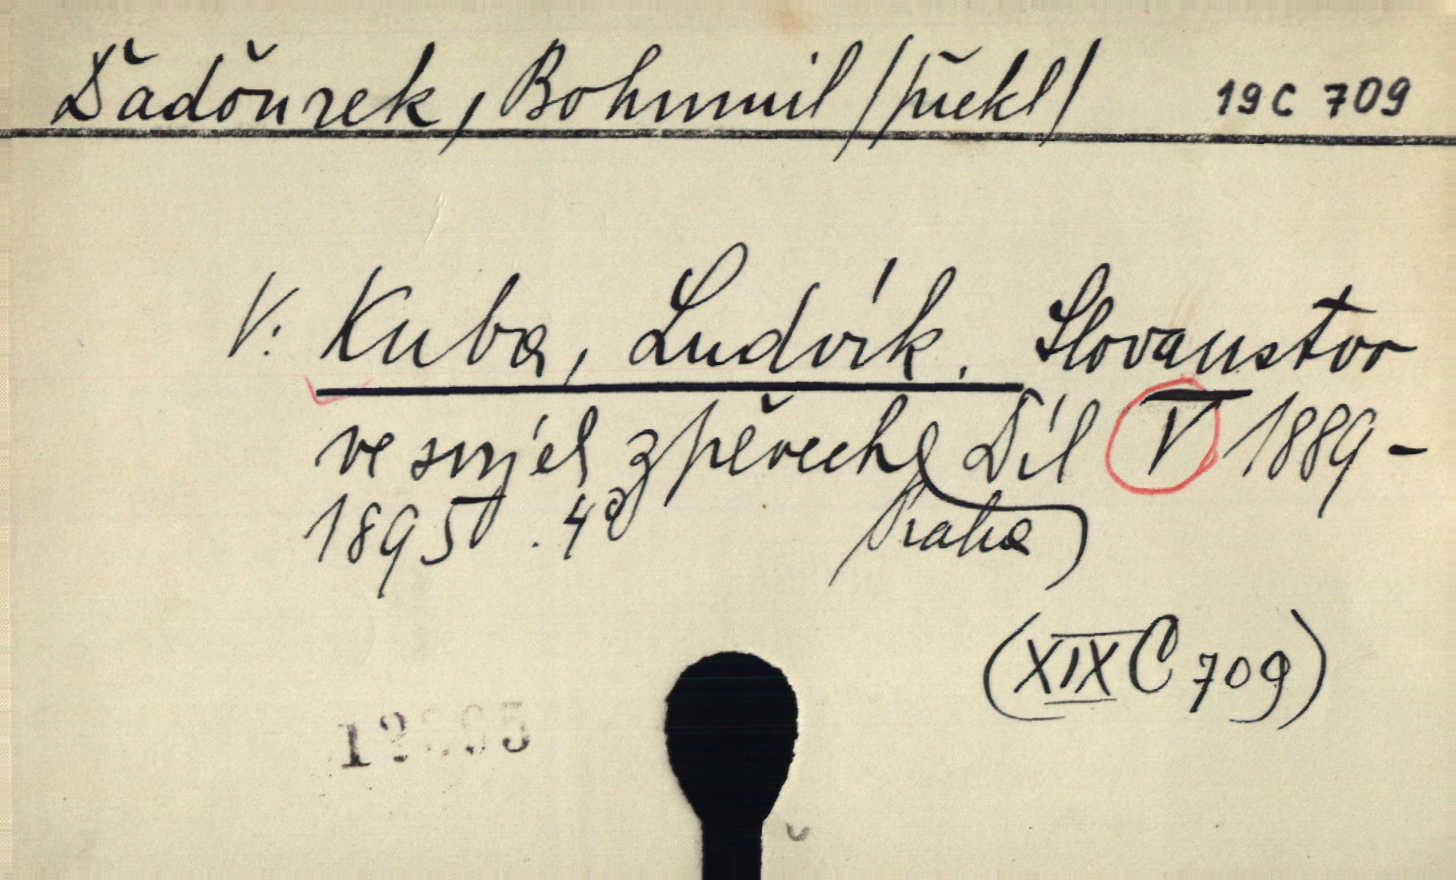 Ďaďourek, Bohumil /překl/ 19 C 709
V: Kuba, Ludvík. Slovanstvo
ve svých zpěvech Díl V 1889-
1895. 4° Praha
(XIX C 709)